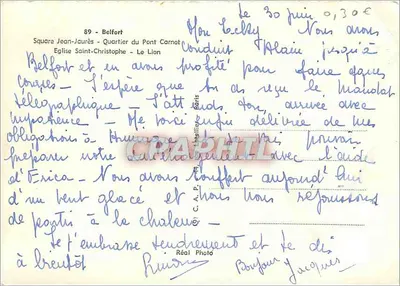 le 30 juin 0,30€
89 - Belfort
Square Jean-Jaurès - Quartier du Pont Carnot
Eglise Saint-Christophe - Le Lion
Mon Jacky. Nous avons
conduit Alain jusqu'à
Belfort et en avons profité pour faire qques
courses - J'espère que tu as reçu le mandat
télégraphique - J'attends ton arrivée avec
impatience - Me voici enfin délivrée de mes
obligations à et je vais pouvoir
préparer notre avec l'aide
d'Erica - Nous avons étouffert aujourd'hui
d'un vent glacé et nous nous réjouissons
de partir à la chaleur -
Je t'embrasse tendrement et te dis
à bientôt
Bonjour Jacques
Réal Photo
CARAPHIL